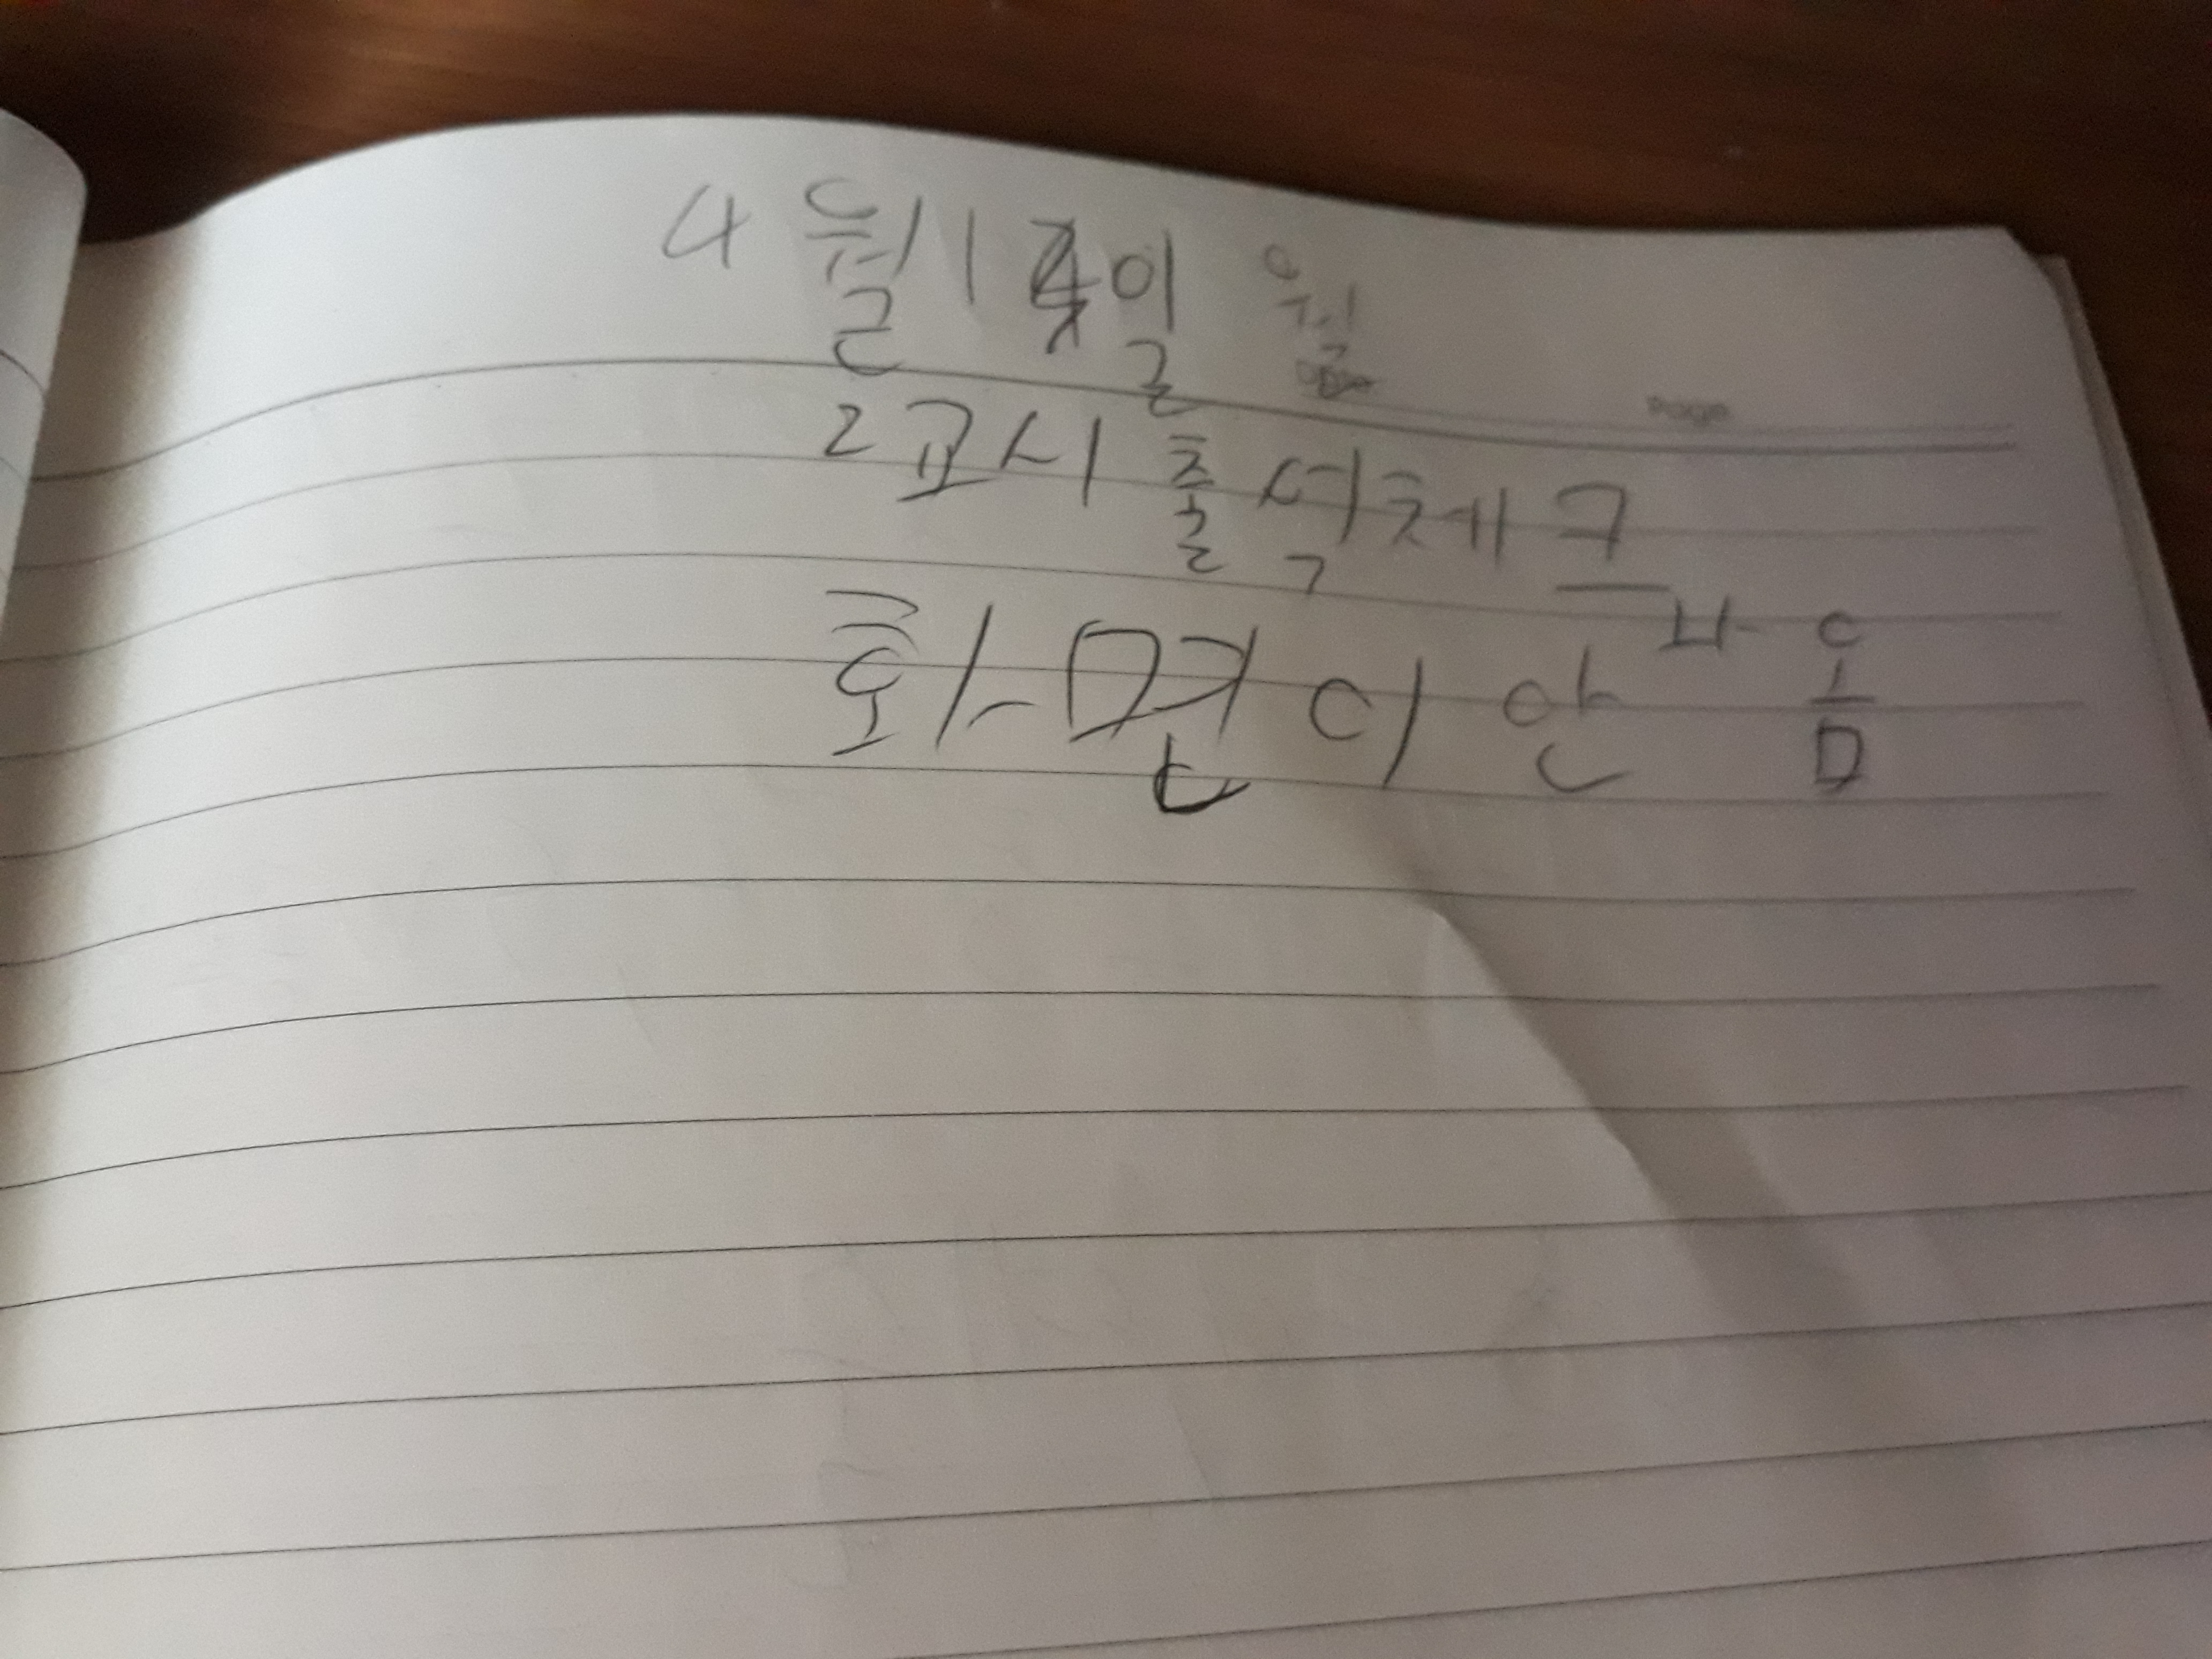 4월 1 일 월
Page
2교시 출석체크
화면이 안 나옴